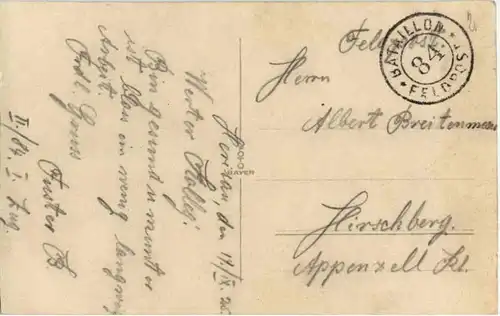 Herisau den 11/IX. 25.
Werter Kolleg.
Bin gesund u munter
ist blos ein wenig langweilig
Arbeit.
Frdl. Gruss
Fuster B.
II/84. I. Zug
Feldpost.
BATAILLON
84
* FELDPOST *
Herrn
Albert Breitenmoser
Hirschberg.
Appenzell Kt.